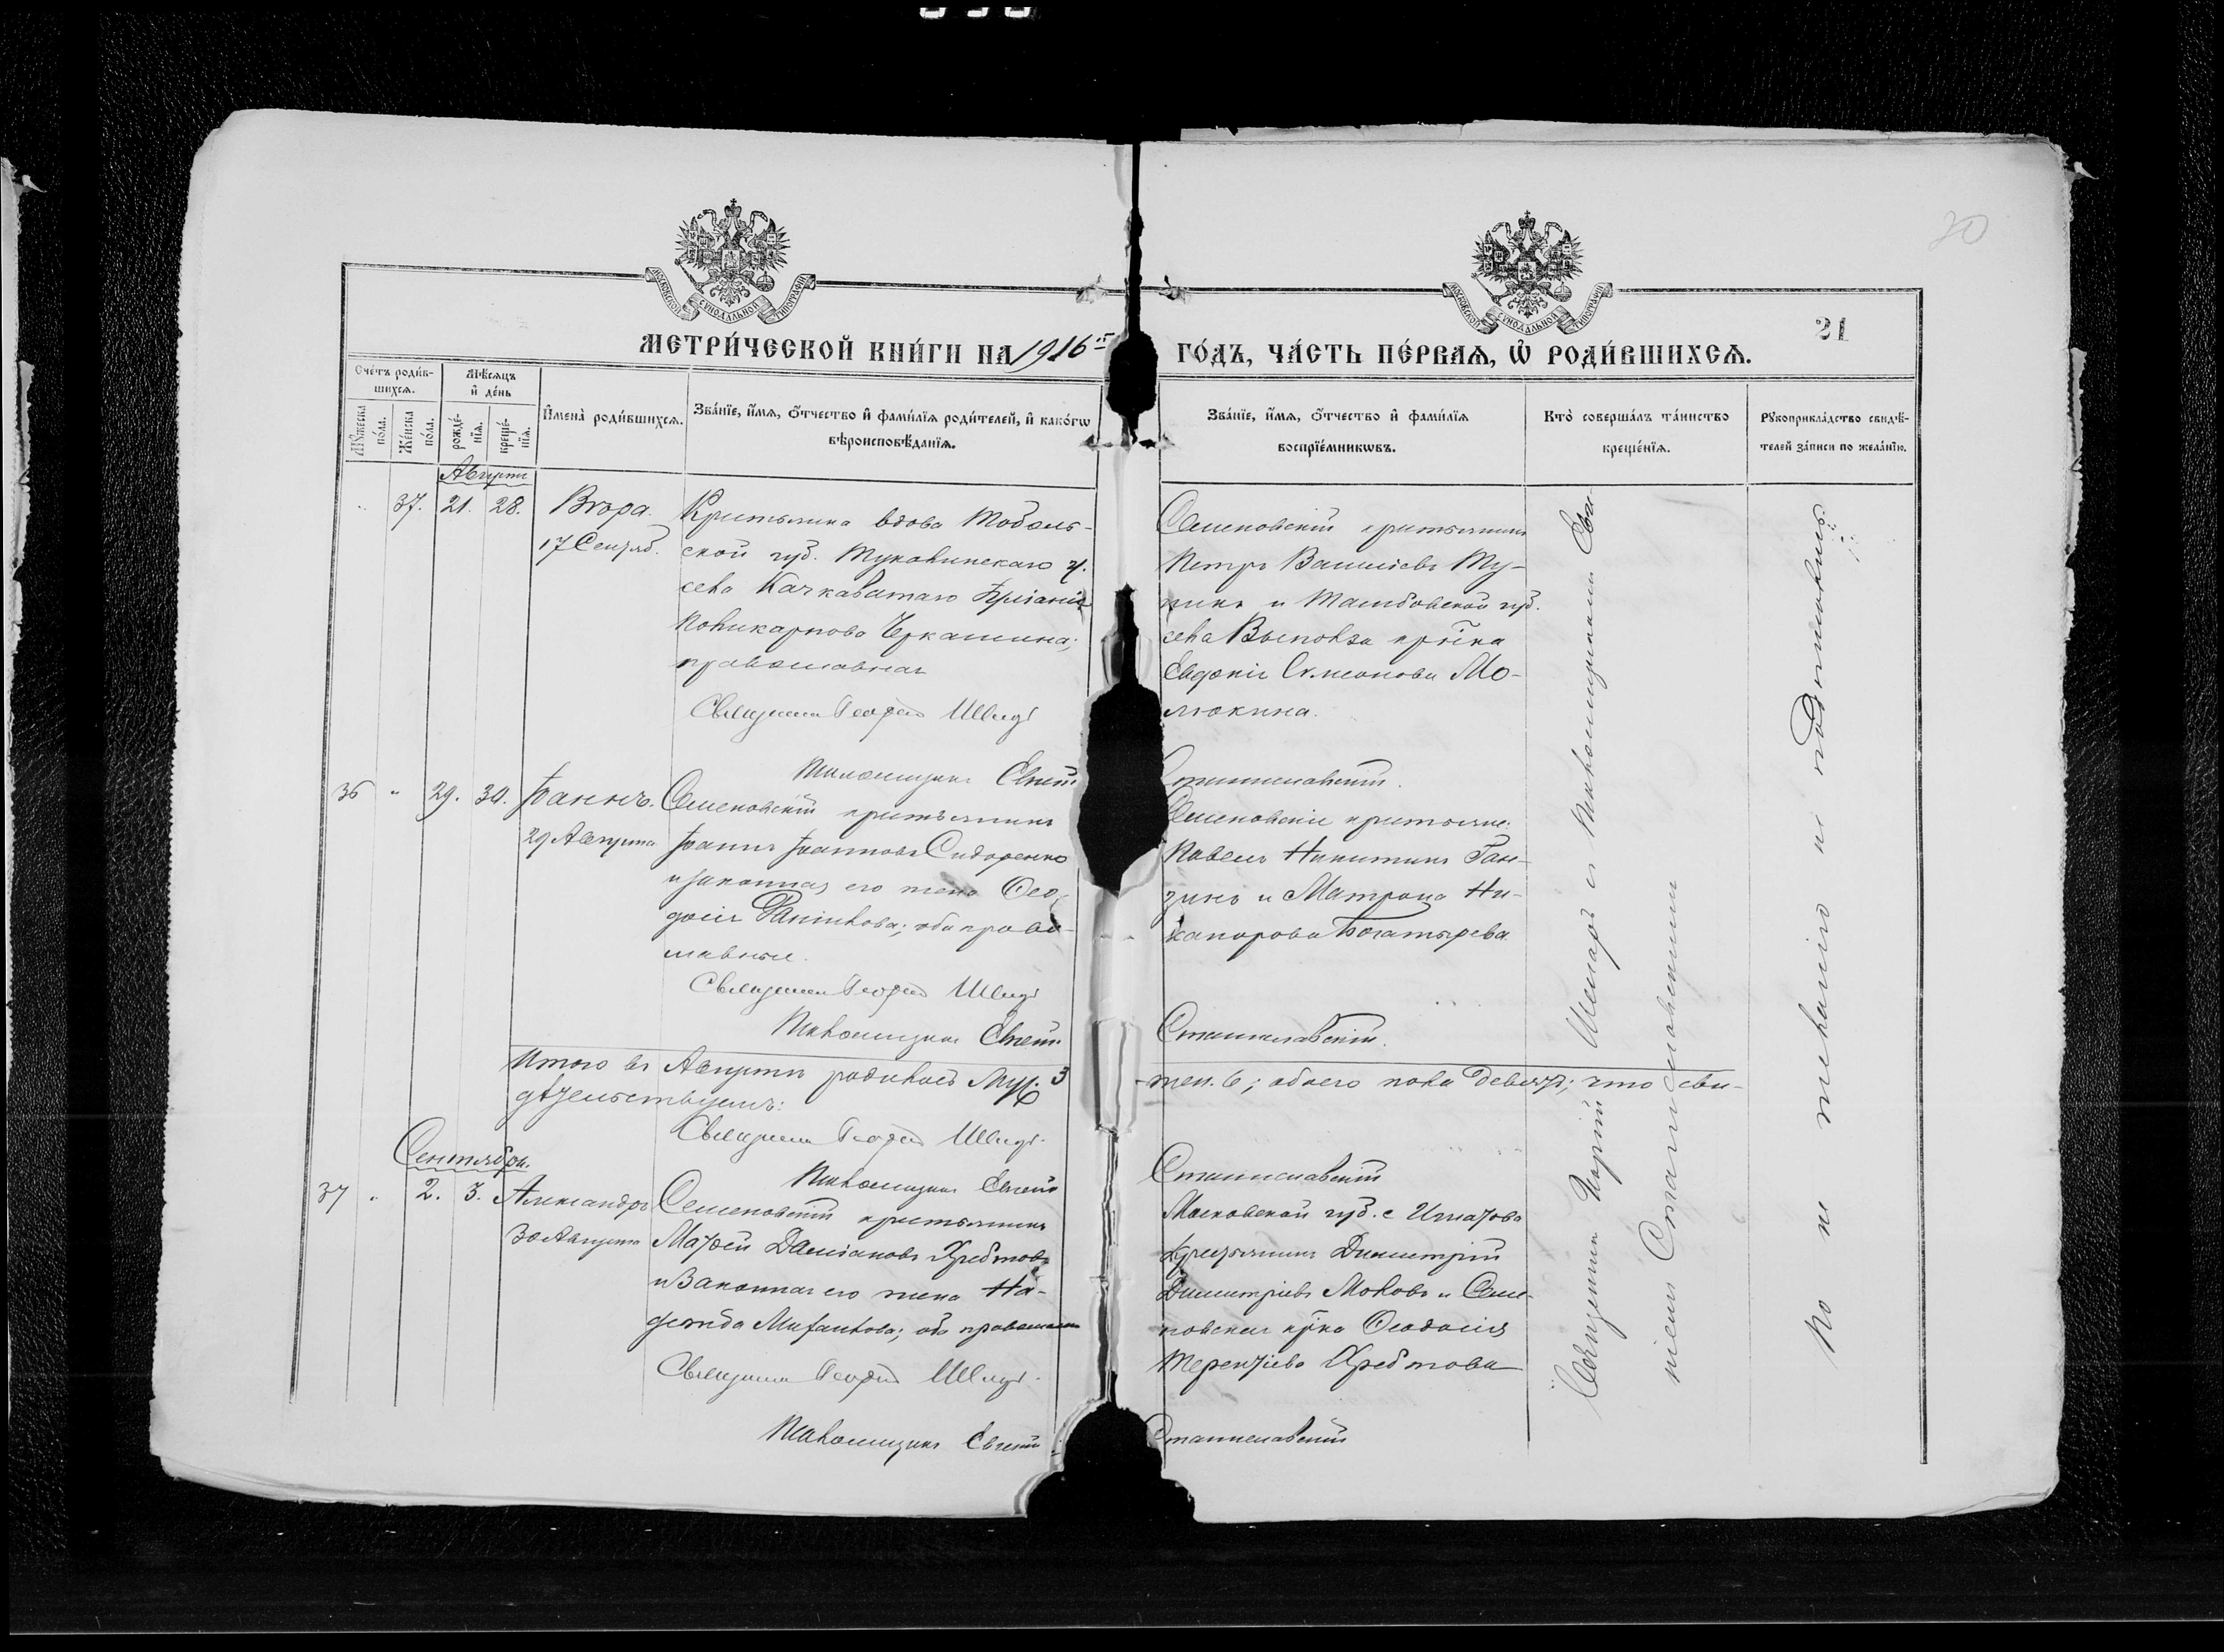 20
21
МОСКОВСКОЙ СУНОДАЛЬНОЙ ТИПОГРАФІИ
МОСКОВСКОЙ СУНОДАЛЬНОЙ ТИПОГРАФІИ
МЕТРИ́ЧЕСКОЙ КНИ́ГИ НА 1916й ГО́ДЪ, ЧА́СТЬ ПЕ́РВАѦ, Ѿ РОДИ́ВШИХСѦ.
Сче́тъ роди́в-
шихсѧ.
Му́жеска
по́ла.
Же́нска
по́ла.
Мѣ́сѧцъ
и҆ де́нь
рожде́-
нїѧ.
креще́-
нїѧ.
И҆мена̀ роди́вшихсѧ.
Зва́нїе, и҆́мѧ, ѻ҆́тчество и҆ фами́лїѧ роди́телей, и҆ како́гѡ
вѣроисповѣ́данїѧ.
Зва́нїе, и҆́мѧ, ѻ҆́тчество и҆ фами́лїѧ
воспрїе́мникѡвъ.
Кто̀ соверша́лъ та́инство
креще́нїѧ.
Рꙋкоприкла́дство свидѣ́-
телей за́писи по жела́нїю.
Августъ
37. 21. 28.
Вѣра.
17 Сентяб.
Крестьянка вдова Тоболь-
ской губ. Тукалинскаго у.
села Качковатаго
Поликарпова Черкашина;
православная
Священникъ Георгій Швидъ
Псаломщикъ Евгеній
Семеновскій крестьянинъ
Петръ Василіевъ Ту-
пикъ и Тамбовской губ.
села Выползи кр-нка
Евдокія Симеонова Мо-
люкина.
Станиславскій.
36 " 29. 30. Іоаннъ.
29 Августа
Семеновскій крестьянинъ
Іоаннъ Іоанновъ Сидоренко
и законная его жена Ѳео-
досія; оба право-
славные.
Священникъ Георгій Швидъ
Псаломщикъ Евгеній
Семеновскіе крестьяне:
Павелъ Никитинъ Ган-
зинъ и Матрона Ни-
канорова Богатырева.
Станиславскій.
Итого въ Августѣ родилось муж. 3
жен. 6; обоего пола девять; что сви-
дѣтельствуемъ:
Священникъ Георгій Швидъ.
Псаломщикъ Евгеній
Станиславскій
Сентябрь.
37 " 2. 3. Александръ
30 Августа
Семеновскій крестьянинъ
Матѳей Даміановъ Хребтовъ
и законная его жена На-
дежда Михаилова; оба православные
Священникъ Георгій Швидъ.
Псаломщикъ Евгеній
Московской губ. с. Игнатова
крестьянинъ Димитрій
Димитріевъ Моховъ и Семе-
новская кр-нка Ѳеодосія
Терентіева Хребтова
Станиславскій
Священникъ Георгій Швидъ съ Псаломщикомъ Евге-
ніемъ Станиславскимъ
По не желанію не подписались